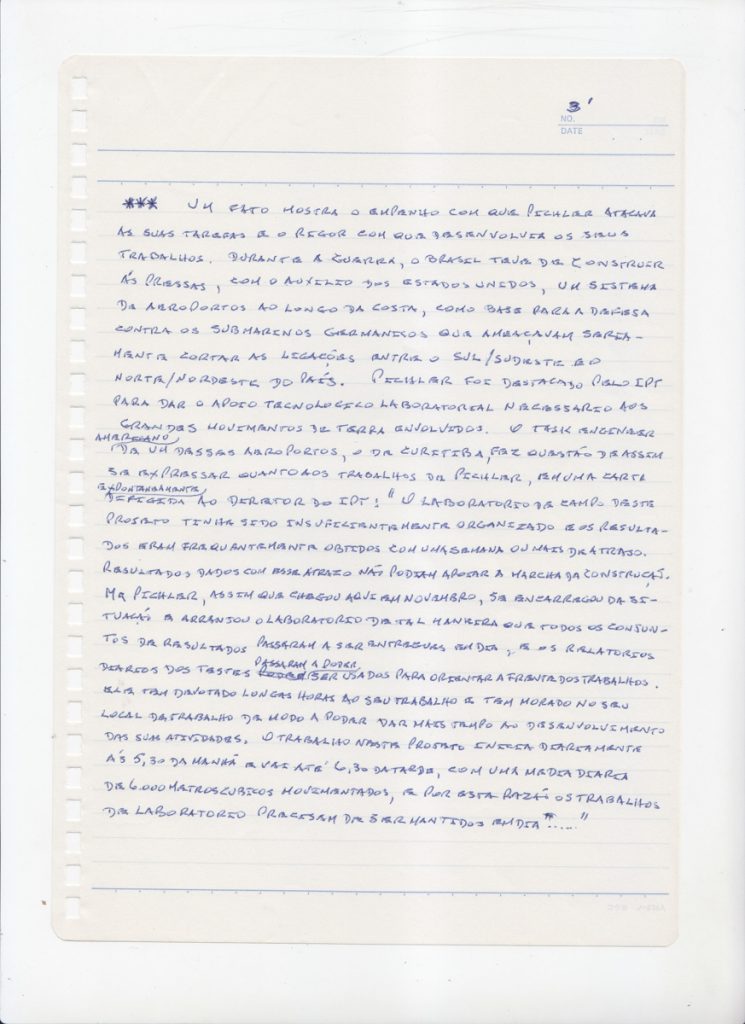 3'
NO.
DATE
*** UM FATO MOSTRA O EMPENHO COM QUE PICHLER ATACAVA
AS SUAS TAREFAS E O RIGOR COM QUE DESENVOLVIA OS SEUS
TRABALHOS. DURANTE A GUERRA, O BRASIL TEVE DE CONSTRUIR
ÀS PRESSAS, COM O AUXILIO DOS ESTADOS UNIDOS, UM SISTEMA
DE AEROPORTOS AO LONGO DA COSTA, COMO BASE PARA A DEFESA
CONTRA OS SUBMARINOS GERMANICOS QUE AMEAÇAVAM SERIA-
MENTE CORTAR AS LIGAÇÕES ENTRE O SUL/SUDESTE E O
NORTE/NORDESTE DO PAÍS. PICHLER FOI DESTACADO PELO IPT
PARA DAR O APOIO TECNOLOGICO LABORATORIAL NECESSARIO AOS
GRANDES MOVIMENTOS DE TERRA ENVOLVIDOS. O TASK ENGINEER
AMERICANO
DE UM DESSES AEROPORTOS, O DE CURITIBA, FEZ QUESTÃO DE ASSIM
SE EXPRESSAR QUANTO AOS TRABALHOS DE PICHLER, EM UMA CARTA
EXPONTANEAMENTE
DIRIGIDA AO DIRETOR DO IPT: "O LABORATORIO DE CAMPO DESTE
PROJETO TINHA SIDO INSUFICIENTEMENTE ORGANIZADO E OS RESULTA-
DOS ERAM FREQUENTEMENTE OBTIDOS COM UMA SEMANA OU MAIS DE ATRASO.
RESULTADOS DADOS COM ESSE ATRAZO NÃO PODIAM APOIAR A MARCHA DA CONSTRUÇÃO.
MR PICHLER, ASSIM QUE CHEGOU AQUI EM NOVEMBRO, SE ENCARREGOU DA SI-
TUAÇÃO E ARRANJOU O LABORATORIO DE TAL MANEIRA QUE TODOS OS CONJUN-
TOS DE RESULTADOS PASSARAM A SER ENTREGUES EM DIA, E OS RELATORIOS
PASSARAM A PODER
DIARIOS DOS TESTES SER USADOS PARA ORIENTAR A FRENTE DOS TRABALHOS.
ELE TEM DEVOTADO LONGAS HORAS AO SEU TRABALHO E TEM MORADO NO SEU
LOCAL DE TRABALHO DE MODO A PODER DAR MAIS TEMPO AO DESENVOLVIMENTO
DAS SUAS ATIVIDADES. O TRABALHO NESTE PROJETO INICIA DIARIAMENTE
ÀS 5,30 DA MANHÃ E VAI ATÉ 6,30 DA TARDE, COM UMA MEDIA DIARIA
DE 6.000 METROS CUBICOS MOVIMENTADOS, E POR ESTA RAZÃO OS TRABALHOS
DE LABORATORIO PRECISAM DE SER MANTIDOS EM DIA ....."